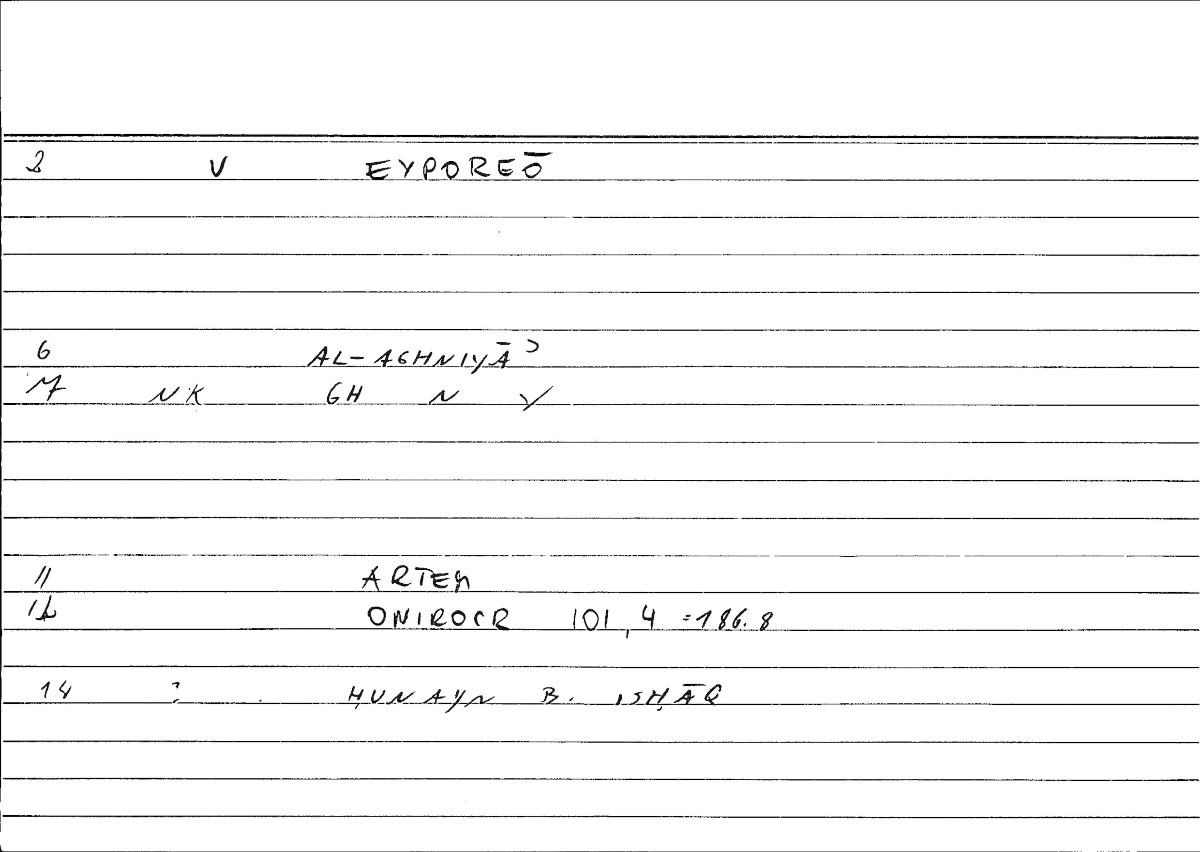 2 V EYPOREŌ
6 AL-AGHNIYĀʾ
7 NK GH N Y
11 ARTEM
12 ONIROCR 101,4 =186.8
14 ? . ḤUNAYN B. ISḤĀQ